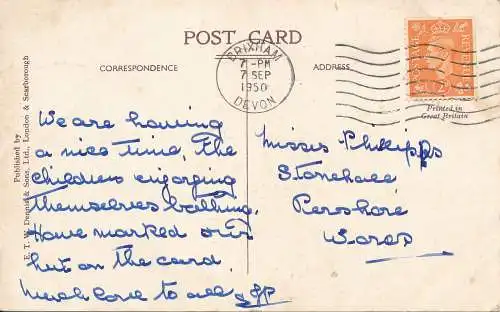 POST CARD
CORRESPONDENCE
ADDRESS
BRIXHAM
7 - PM
7 SEP
1950
DEVON
POSTAGE REVENUE
Printed in
Great Britain
Published by
E. T. W. Dennis & Sons, Ltd., London & Scarborough
We are having
a nice time, The
children enjoying
themselves bathing.
Have marked our
hut on the card.
Much love to all
Misses Phillipps
Stonehall
Pershore
Worcs